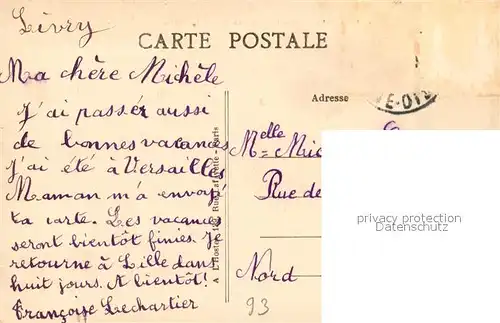 Livry
CARTE POSTALE
Ma chère Michèle
Adresse
J'ai passér aussi
de bonnes vacances
J'ai été à Versailles
Maman m'a envoyé
ta carte. Les vacances
seront bientôt finies. Je
retourne à Lille dans
huit jours. A bientôt!
Françoise Lechartier
A L'Hoste, Rue Lafayette - Paris
VE-OI
Melle Mic
Rue de
Nord
93
privacy protection
Datenschutz